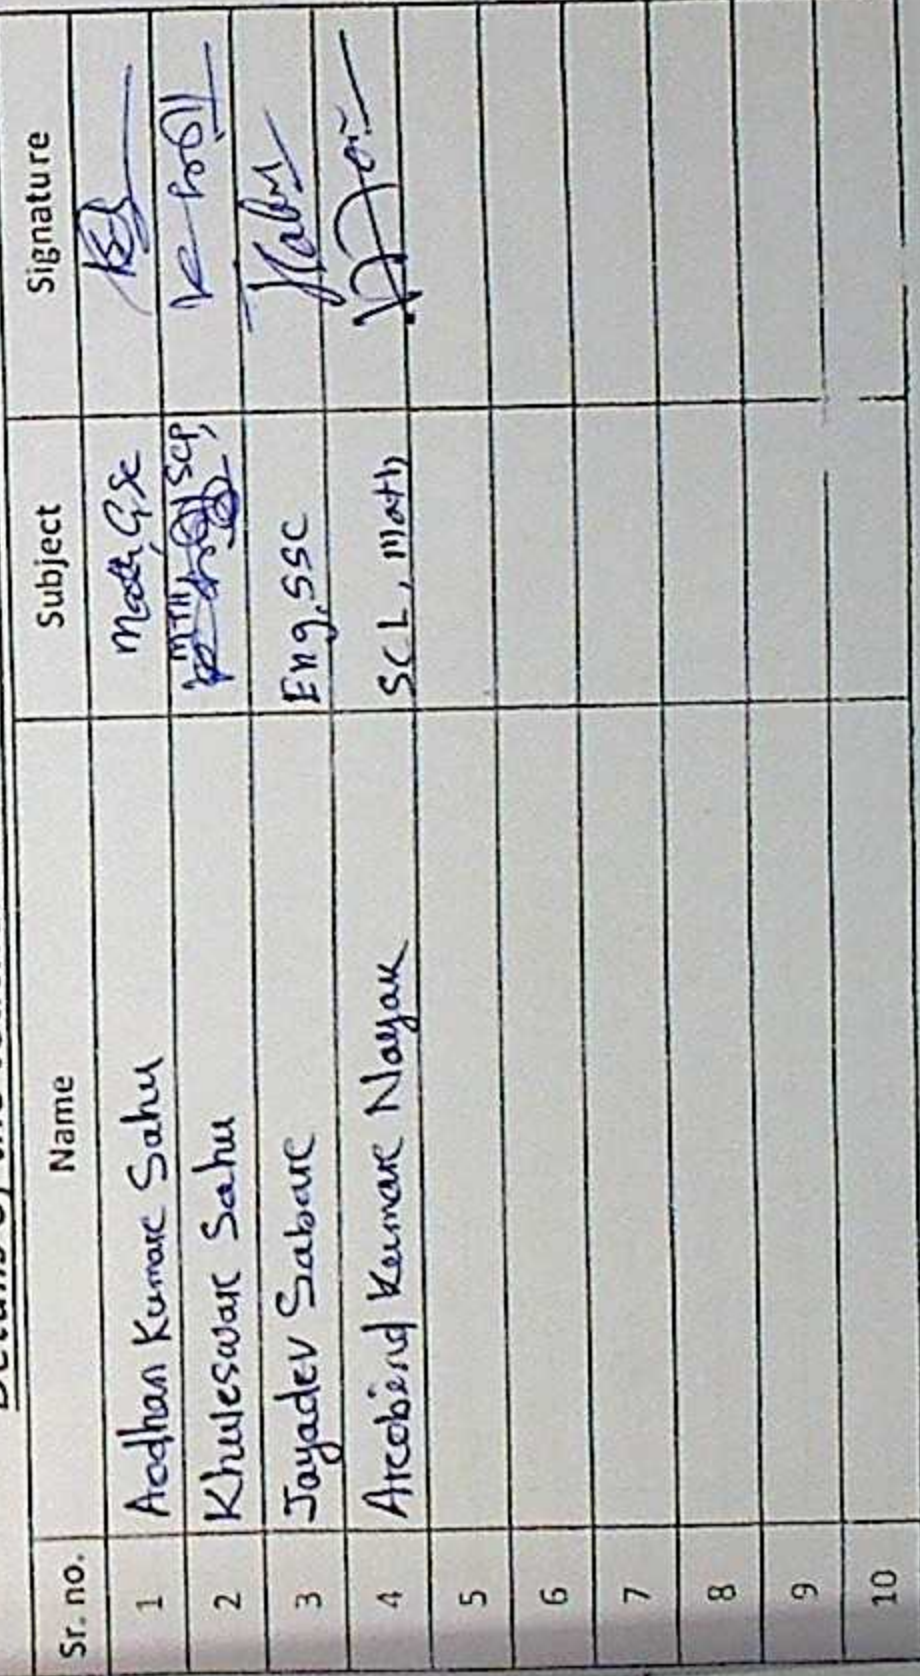 Details of
Sr. no. Name Subject Signature
1 Aodhan Kumar Sahu Math, G.Sc
2 Khuleswar Sahu MTH SCP,
3 Jayadev Sabar Eng, SSC
4 Arobind Kumar Nayak SCL, Math
5
6
7
8
9
10